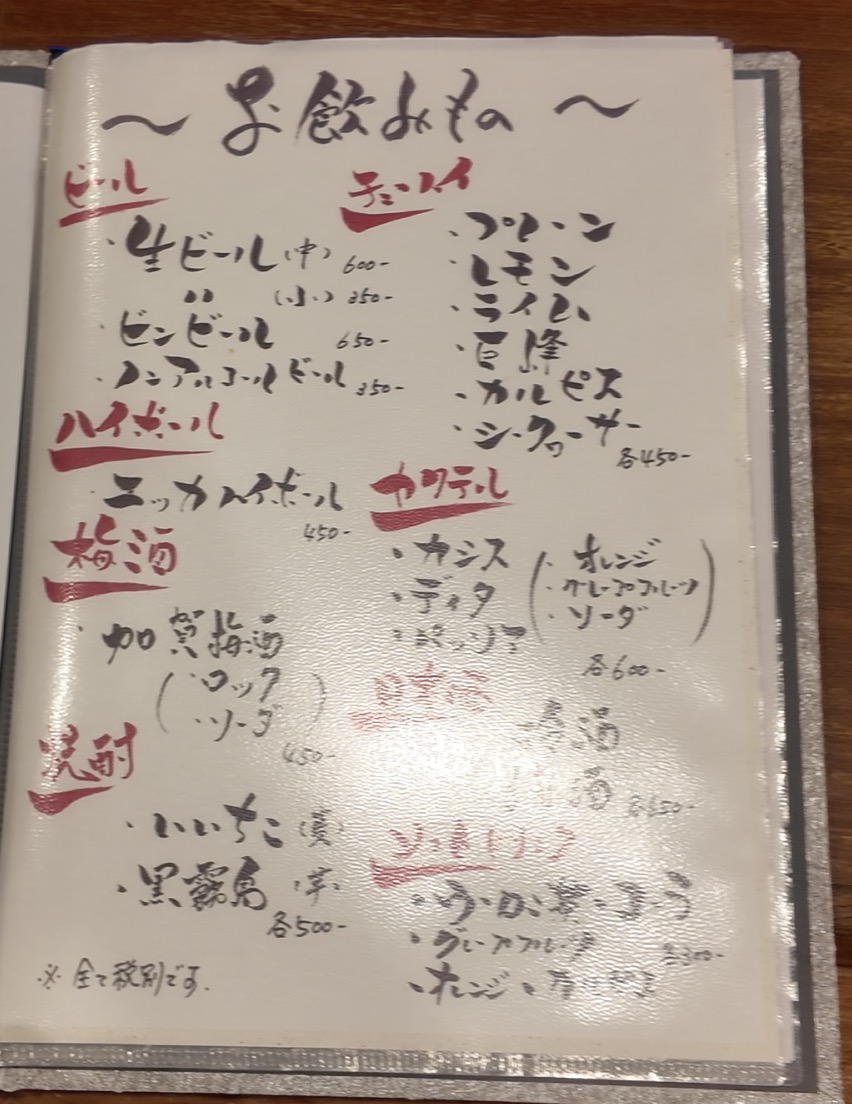 〜お飲みもの〜
ビール
・生ビール(中) 600-
〃 (小) 350-
・ビンビール 650-
・ノンアルコールビール 350-
ハイボール
・ニッカハイボール
450-
梅酒
・加賀梅酒
(・ロック
・ソーダ)
450-
焼酎
・いいちこ(麦)
・黒霧島(芋)
各500-
※全て税別です.
チューハイ
・プレーン
・レモン
・ライム
・巨峰
・カルピス
・シークワーサー
各450-
カクテル
・カシス
・ディタ
(・オレンジ
・グレープフルーツ
・ソーダ)
各600-
日本酒
酒
酒 各650-
ソフトドリンク
・ウーロン茶・コーラ
・グレープフルーツ 各300-
・オレンジ・カルピス